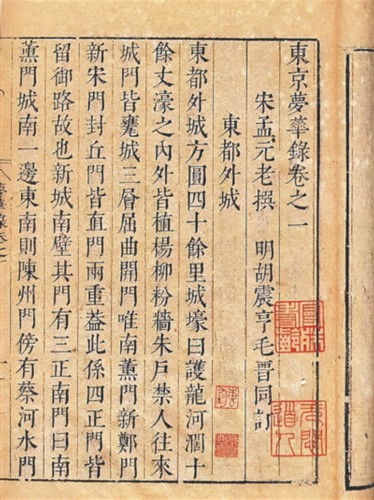 東京夢華錄卷之一
宋孟元老撰 明胡震亨毛晉同訂
東都外城
東都外城方圓四十餘里城壕曰護龍河濶十
餘丈濠之內外皆植楊柳粉牆朱戶禁人往來
城門皆甕城三層屈曲開門唯南薫門新鄭門
新宋門封丘門皆直門兩重葢此係四正門皆
留御路故也新城南壁其門有三正南門曰南
薫門城南一邊東南則陳州門傍有蔡河水門